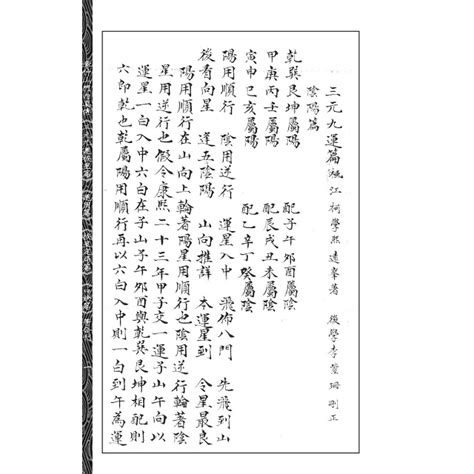 三元九運篇 江柯學熙遠峯著 後學李珊刪正
陰陽篇
乾巽艮坤屬陽 配子午卯酉屬陰
甲庚丙壬屬陽 配辰戌丑未屬陰
寅申巳亥屬陽 配乙辛丁癸屬陰
陽用順行 陰用逆行 運星入中 飛佈八門 先飛到山
後看向星 逢五陰陽 山向推詳 本運星到 令星最良
陽用順行在山向上輪著陽星用順行也陰用逆行輪著陰
星用逆行也假令康熙二十三年甲子交一運子山午向以
運星一白入中六白在子山子午卯酉與乾巽艮坤相配則
六即乾也乾屬陽用順行再以六白入中則一白到午為運